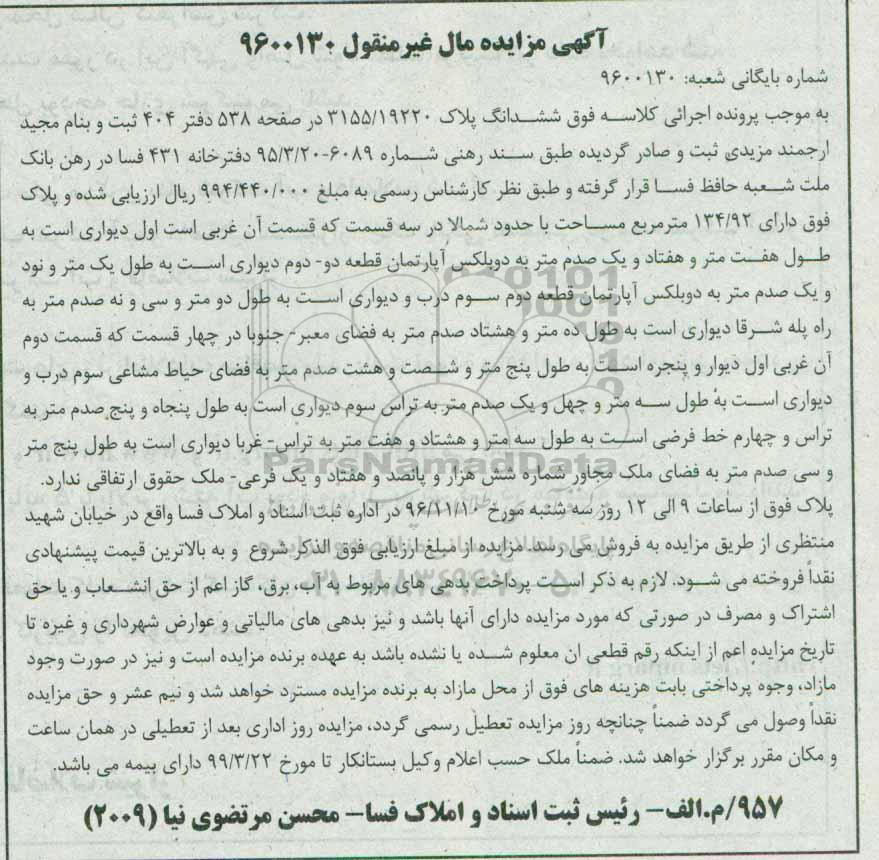 آگهی مزایده مال غیرمنقول ۹۶۰۰۱۳۰
شماره بایگانی شعبه: ۹۶۰۰۱۳۰
به موجب پرونده اجرائی کلاسه فوق ششدانگ پلاک ۳۱۵۵/۱۹۲۲۰ در صفحه ۵۳۸ دفتر ۴۰۴ ثبت و بنام مجید
ارجمند مزیدی ثبت و صادر گردیده طبق سند رهنی شماره ۶۰۸۹-۹۵/۳/۲۰ دفترخانه ۴۳۱ فسا در رهن بانک
ملت شعبه حافظ فسا قرار گرفته و طبق نظر کارشناس رسمی به مبلغ ۹۹۴/۴۴۰/۰۰۰ ریال ارزیابی شده و پلاک
فوق دارای ۱۳۴/۹۲ مترمربع مساحت با حدود شمالا در سه قسمت که قسمت آن غربی است اول دیواری است به
طول هفت متر و هفتاد و یک صدم متر به دوبلکس آپارتمان قطعه دو- دوم دیواری است به طول یک متر و نود
و یک صدم متر به دوبلکس آپارتمان قطعه دوم سوم درب و دیواری است به طول دو متر و سی و نه صدم متر به
راه پله شرقا دیواری است به طول ده متر و هشتاد صدم متر به فضای معبر- جنوبا در چهار قسمت که قسمت دوم
آن غربی اول دیوار و پنجره است به طول پنج متر و شصت و هشت صدم متر به فضای حیاط مشاعی سوم درب و
دیواری است به طول سه متر و چهل و یک صدم متر به تراس سوم دیواری است به طول پنجاه و پنج صدم متر به
تراس و چهارم خط فرضی است به طول سه متر و هشتاد و هفت متر به تراس- غربا دیواری است به طول پنج متر
و سی صدم متر به فضای ملک مجاور شماره شش هزار و پانصد و هفتاد و یک فرعی- ملک حقوق ارتفاقی ندارد.
پلاک فوق از ساعات ۹ الی ۱۲ روز سه شنبه مورخ ۹۶/۱۱/۱۰ در اداره ثبت اسناد و املاک فسا واقع در خیابان شهید
منتظری از طریق مزایده به فروش می رسد. مزایده از مبلغ ارزیابی فوق الذکر شروع و به بالاترین قیمت پیشنهادی
نقداً فروخته می شود. لازم به ذکر است پرداخت بدهی های مربوط به آب، برق، گاز اعم از حق انشعاب و یا حق
اشتراک و مصرف در صورتی که مورد مزایده دارای آنها باشد و نیز بدهی های مالیاتی و عوارض شهرداری و غیره تا
تاریخ مزایده اعم از اینکه رقم قطعی ان معلوم شده یا نشده باشد به عهده برنده مزایده است و نیز در صورت وجود
مازاد، وجوه پرداختی بابت هزینه های فوق از محل مازاد به برنده مزایده مسترد خواهد شد و نیم عشر و حق مزایده
نقداً وصول می گردد ضمناً چنانچه روز مزایده تعطیل رسمی گردد، مزایده روز اداری بعد از تعطیلی در همان ساعت
و مکان مقرر برگزار خواهد شد. ضمناً ملک حسب اعلام وکیل بستانکار تا مورخ ۹۹/۳/۲۲ دارای بیمه می باشد.
۹۵۷/م.الف- رئیس ثبت اسناد و املاک فسا- محسن مرتضوی نیا (۲۰۰۹)
ParsNamadData